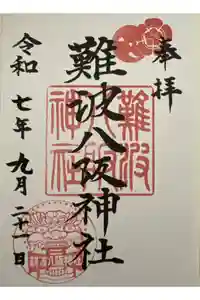 奉拝
難波八阪神社
難波
八阪
神社
令和七年九月二十一日